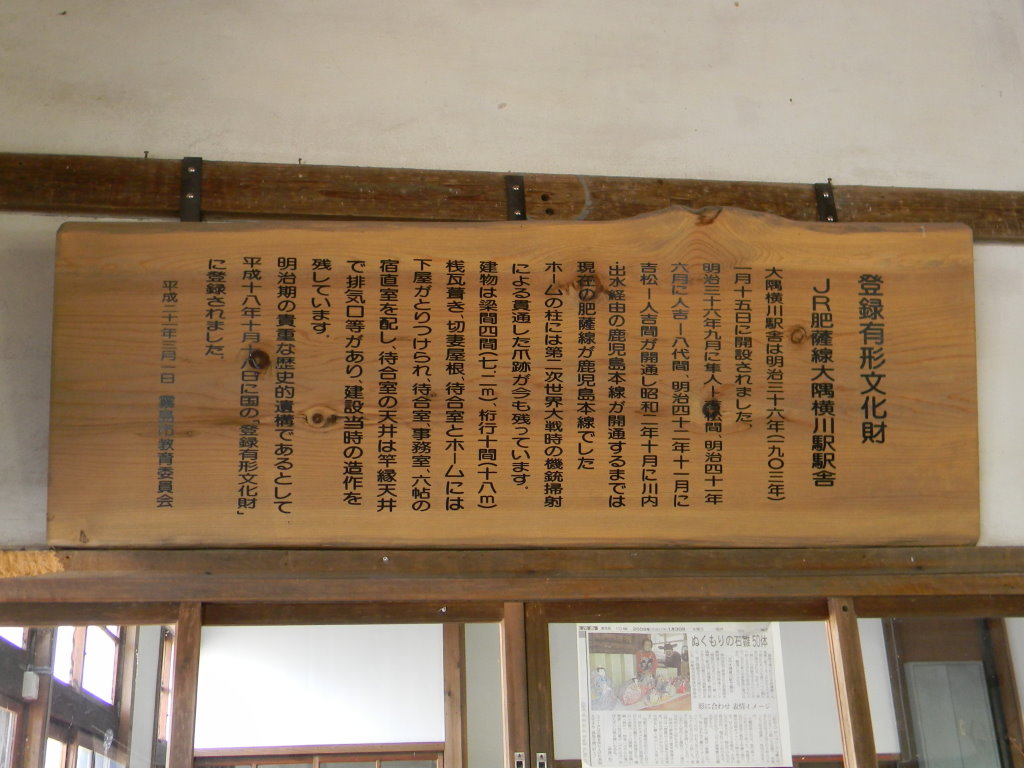 登録有形文化財
JR肥薩線大隅横川駅駅舎
大隅横川駅舎は明治三十六年(一九〇三年)
一月十五日に開設されました。
明治三十六年九月に隼人ー吉松間、明治四十一年
六月に人吉ー八代間、明治四十二年十一月に
吉松ー人吉間が開通し昭和二年十月に川内
・出水経由の鹿児島本線が開通するまでは
現在の肥薩線が鹿児島本線でした
ホームの柱には第二次世界大戦時の機銃掃射
による貫通した爪跡が今も残っています。
建物は梁間四間(七.二m)、桁行十間(十八m)
桟瓦葺き、切妻屋根、待合室とホームには
下屋がとりつけられ、待合室、事務室、六帖の
宿直室を配し、待合室の天井は竿縁天井
で排気口等があり、建設当時の造作を
残しています。
明治期の貴重な歴史的遺構であるとして
平成十八年十月十八日に国の「登録有形文化財」
に登録されました。
平成二十年三月一日 霧島市教育委員会
ぬくもりの石雛50体
形に合わせ 表情イメージ